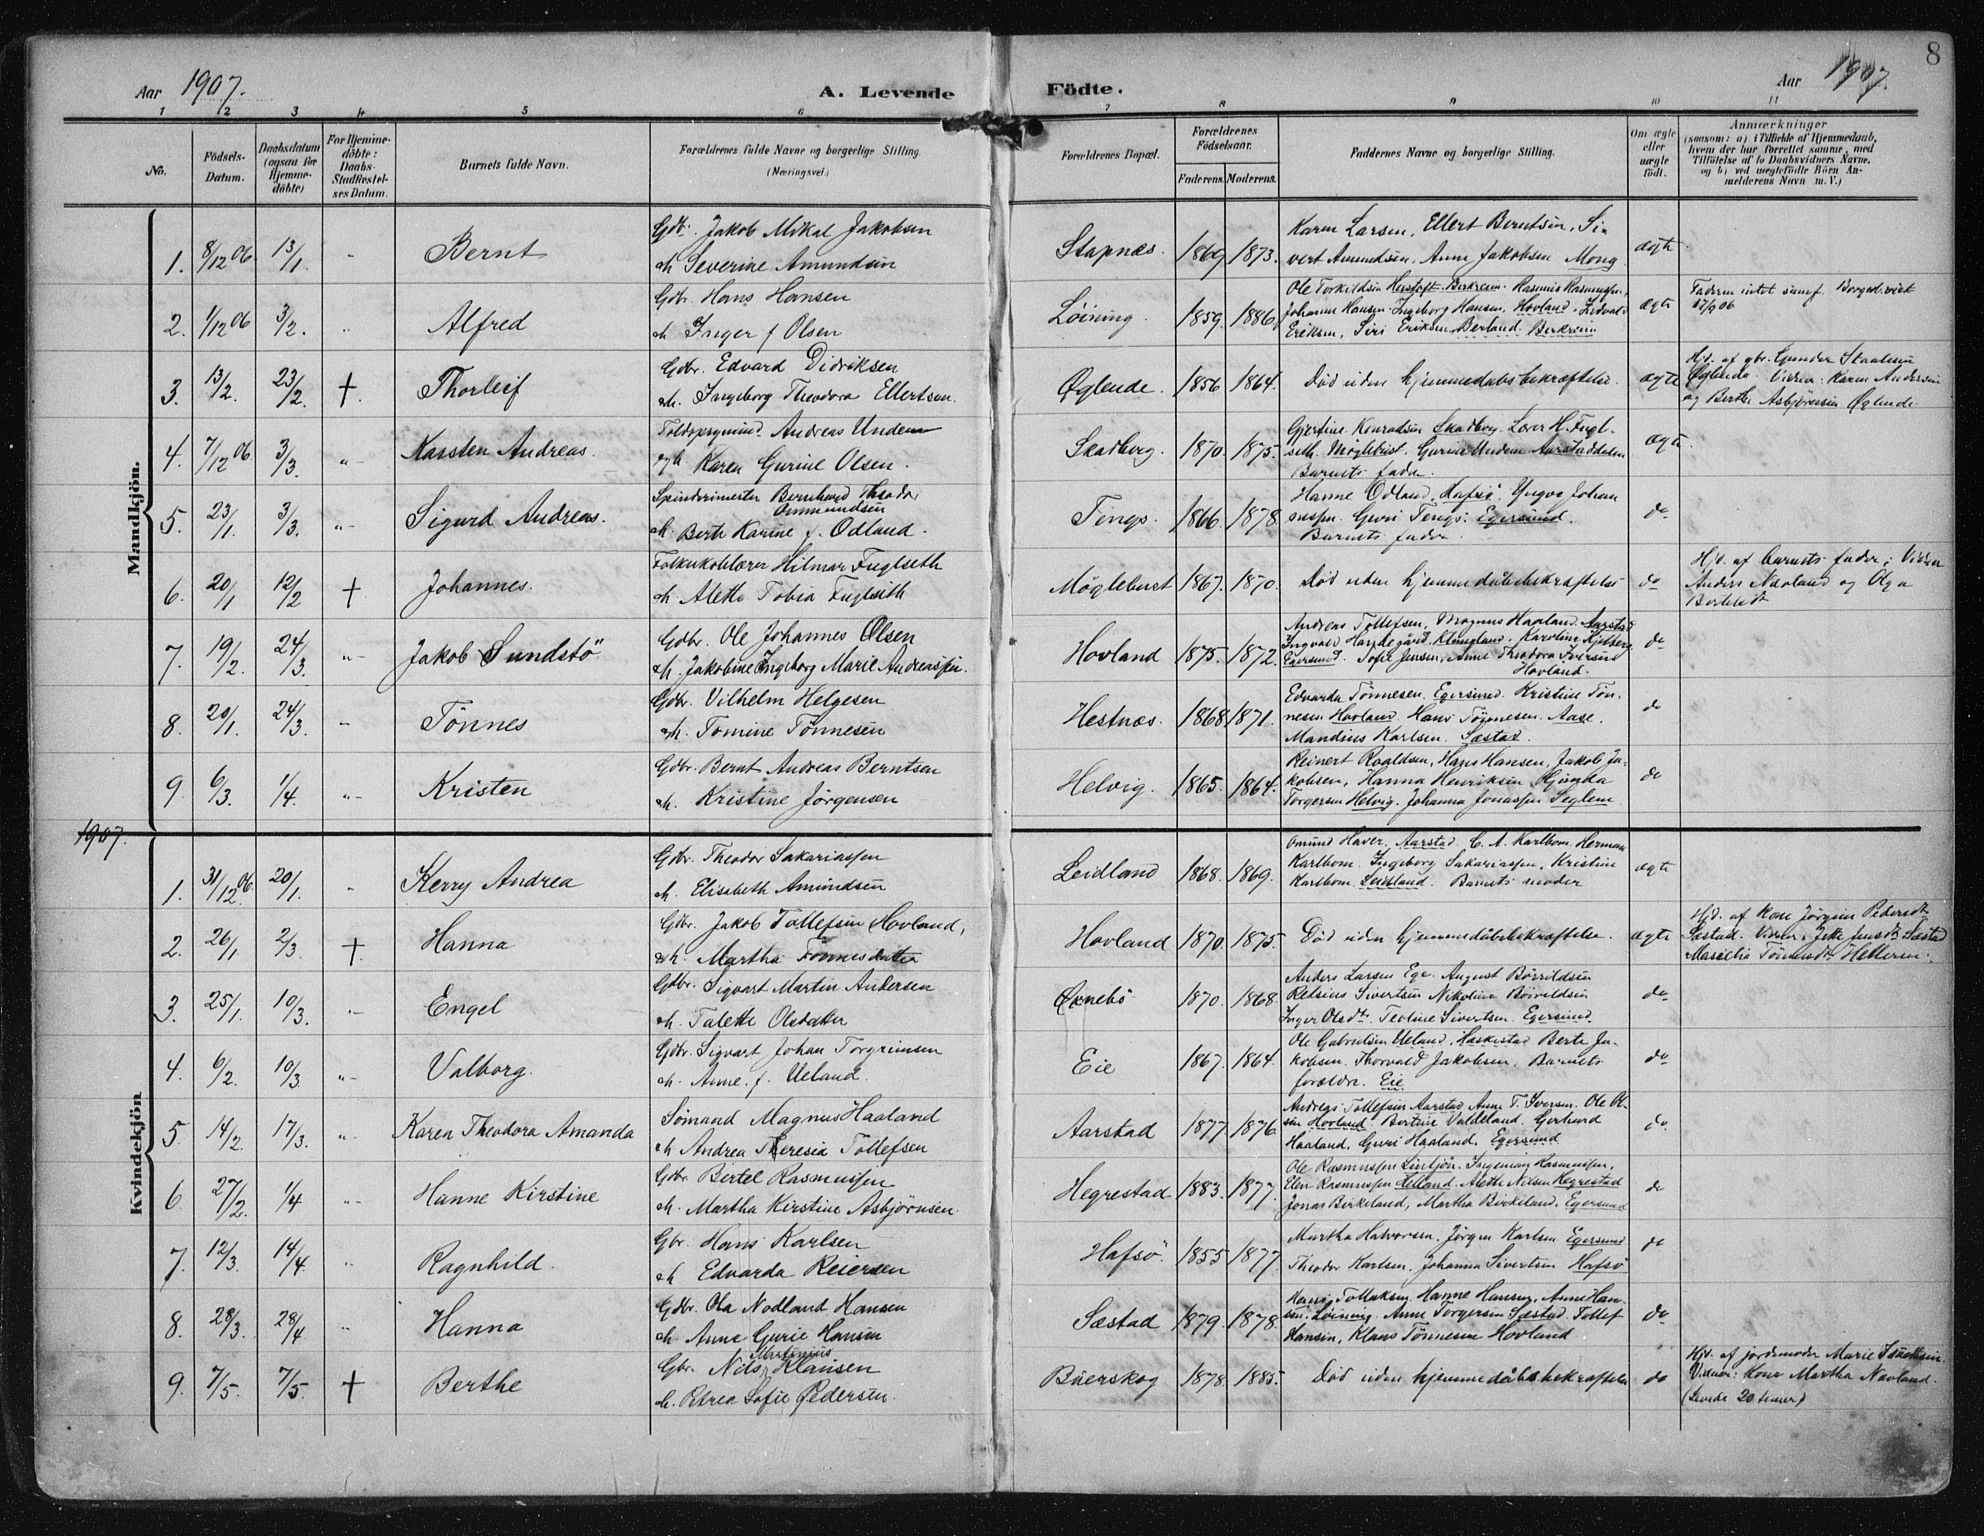 8
Aar 1907. A. Levende Födte. Aar 1907.
1 2 3 4 5 6 7 8 9 10 11
No.
Födsels-Datum.
Daabsdatum (ogsaa for Hjemme-döbte)
For Hjemme-döbte: Daabs-Stadfæstel-ses Datum.
Barnets fulde Navn.
Forældrenes fulde Navne og borgerlige Stilling.
(Næringsvei.)
Forældrenes Bopæl.
Forældrenes Födselsaar.
Faderens. Moderens.
Faddernes Navne og borgerlige Stilling.
Om ægte eller uægte födt.
Anmærkninger
(saasom: a) i Tilfælde af Hjemmedaab,
hvem der har forrettet samme, med
Tilföielse af to Daabsvidners Navne,
og b) ved uægtefödte Börn An-
melderens Navn m. V.)
Mandkjön.
1. 8/12 06 13/1 " Bernt
Gdbr. Jakob Mikal Jakobsen
oh Severine Amundsen
Stapnæs. 1869 1873.
Karen Larsen, Ellert Berntsen, Si-
vert Amundsen, Anne Jakobsen Mong
ægte
2. 1/12 06 3/2. " Alfred
Gdbr. Hans Hansen
oh Inger f Olsen
Löining. 1859. 1886.
Ole Torkildsen Birkrem. Rasmus Rasmussen,
Johanne Hansen. Ingeborg Hansen, Hovland.
Eriksen, Siri Eriksen Berland, Birkrem
ægte
Faderen intet samf. Borged. viet
17/9 06
3. 13/2. 23/2. + Thorleif
Gdbr. Edvard Didriksen
oh. Ingeborg Theodora Ellertsen.
Øglende. 1856 1864.
Död uden hjemmedaabsbekræftelse.
ægte
Hjd. af gbr. Gunder Staalesen
Øglende. Vidner: Karen Andersen
og Berthe Asbjörnsen Øglende
4. 7/12 06 3/3. " Karsten Andreas.
Andreas Undem
oh Karen Gurine Olsen.
Skadberg. 1870. 1875.
Gjertine Konradsen Skadberg. Lærer H. Fugl-
seth. Mögleburst. Gurine Undem Aarstaddalen
Barnets fader.
ægte
5. 23/1. 3/3. " Sigurd Andreas.
Spinderimester Bernhard Theodor
Ommundsen
oh Berte Karine f. Odland.
Tengs. 1866. 1878.
Hanne Odland, Hafsö, Yngva Johan
nessen. Gurei Tengs. Egersund.
Barnets fader.
do
6. 20/1 12/2 + Johannes.
Folkeskolelærer Hilmar Fuglseth
oh. Alette Tobia Fuglseth
Mögleburst 1867. 1870.
Död uden hjemmedåbsbekræftelse
do
Hjd. af barnets fader; Vidner
Anders Nævland og Olga
7. 19/2. 24/3. " Jakob Sundstö
Gdbr. Ole Johannes Olsen
oh. Jakobine Ingeborg Marie Andreassen.
Hovland 1875. 1872.
Andreas Tollefsen, Magnus Haaland Aarstad
Ingvald Klungland. Karoline Kjelberg
Egersund. Sofie Jensen, Anne Theodora Iversen
Hovland.
do
8. 20/1. 24/3. " Tönnes
Gdbr. Vilhelm Helgesen
oh. Tomine Tönnesen
Hestnæs. 1868. 1871.
Edvarda Tönnesen, Egersund. Kristine Tön-
nesen Hovland. Hans Tönnesen. Aase.
Mandius Karlsen. Sæstad.
do
9. 6/3. 1/4. " Kristen
Gdbr. Bernt Andreas Berntsen
oh. Kristine Jörgensen
Helvig. 1865. 1864.
Reinert Roaldsen, Hans Hansen, Jakob Ja-
kobsen, Hanna Henriksen
Torgersen Helvig. Johanna Jonassen Seglem
do
1907.
Kvindekjön
1. 31/12 06. 20/1. " Kerry Andrea
Gdbr. Theodor Sakariassen
oh. Elisabeth Amundsen
Leidland 1868. 1869.
Omund Haver. Aarstad. C. A. Karlbom. Herman
Karlbom. Ingeborg Sakariassen, Kristine
Karlbom. Leidland. Barnets moder
ægte
2. 26/1. 2/3. + Hanna
Gdbr. Jakob Tollefsen Hovland,
oh. Martha Tönnesdatter
Hovland 1870. 1875.
Död uden hjemmedåbsbekræftelse.
ægte
Hjd. af kone Jörgine Pedersdt.
Sæstad. Vidner: Jette Jensdt. Sæstad
Maselia Tönnesdt. Helleren.
3. 25/1. 10/3. " Engel
Gdbr. Sigvart Martin Andersen
oh. Talette Olsdatter
Øxnebö 1870. 1868.
Anders Larsen Ege. August Börildsen
Retsius Sivertsen Nikoline Böirildsen
Inger Olsdt. Teoline Sivertsen. Egersund.
do
4. 6/2. 10/3. " Valborg.
Gdbr. Sigvart Johan Torgrimsen
oh. Anne. f. Ueland.
Eie 1867. 1864.
Ole Gabrielsen Ueland, Haskestad Berte Ja-
kobsen. Thorvald Jakobsen. Barnets
forældre. Eie
do
5. 14/2. 17/3. " Karen Theodora Amanda
Sömand Magnus Haaland
oh Andrea Theresia Tollefsen
Aarstad 1877. 1876.
Andreas Tollefsen Aarstad, Anne T. Iversen. Ole Ol-
sen Hovland. Bertine Valdeland. Gerhard
Haaland, Gurei Haaland. Egersund
do
6 27/2. 1/4 " Hanne Kirstine
Gdbr Bertel Rasmussen
oh. Martha Kirstine Asbjörnsen.
Hegrestad 1883. 1877.
Ole Rasmussen Ingeman Rasmussen,
Elen Rasmussen Alette Nilsen Hegrestad
Jonas Birkeland, Martha Birkeland, Egersund
do
7 12/3. 14/4 " Ragnhild.
Gbr. Hans Karlsen
oh Edvarda Reiersen
Hafsö. 1855 1877.
Martha Halvorsen, Jörgen Karlsen Egersund
Theodor Karlsen, Johanna Sivertsen Hafsö
do
8. 28/3. 28/4 " Hanna
Gdbr. Ola Nodland Hansen
oh. Anna Gurie Hansen
Sæstad 1879. 1878.
Hans Tollaksen. Hanne Hansen, Anne Han-
sen, Löining. Anne Torgersen Sæstad Tollef
Hansen, Klaus Tönnesen Hovland
do
9. 7/5. 7/5. + Berthe
Gbr. Nils Martinius Klausen
oh. Petrea Sofie Pedersen.
Buerskog 1878. 1885.
Död uden hjemmedåbsbekræftelse
do
Hjd. af jordemoder Marie
Vidner: Kone Martha Nævland.
(Levede 20 timer)